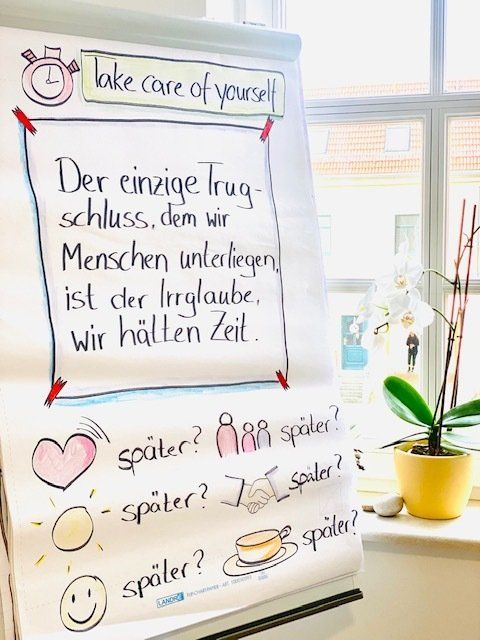 Take care of yourself
Der einzige Trug-
schluss, dem wir
Menschen unterliegen,
ist der Irrglaube,
wir hätten Zeit.
später? später?
später? später?
später? später?
LANDRÉ